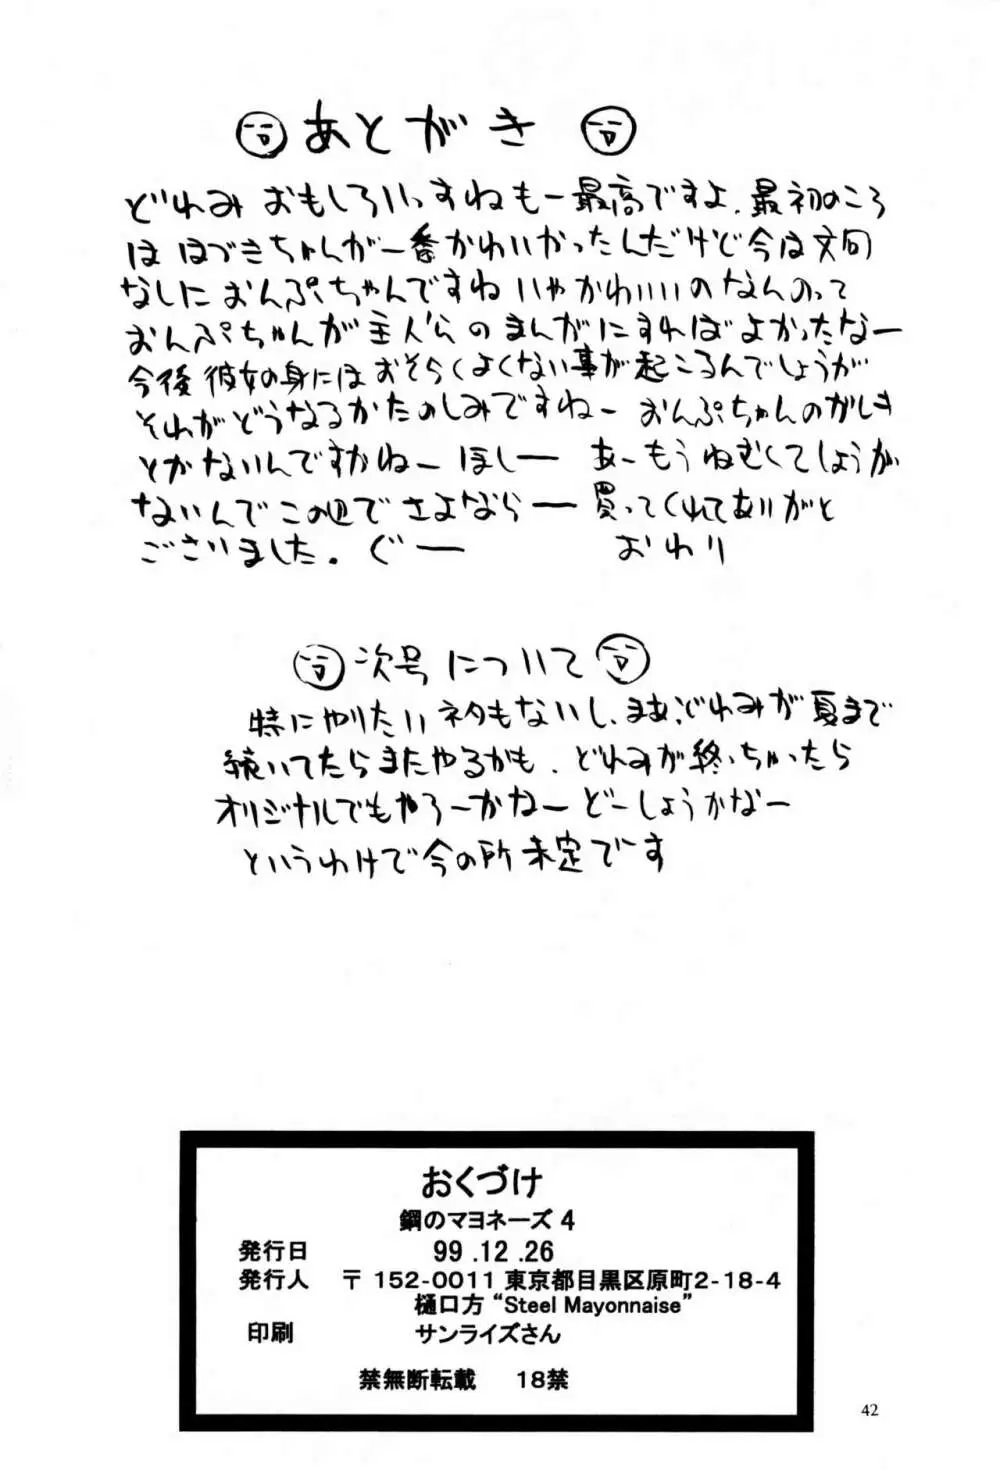 あとがき
どれみ おもしろいっすねもー最高ですよ.最初のころ
は はづきちゃんが一番かわいかったんだけど今は文句
なしに おんぷちゃんですねいやかわいいのなんのって
おんぷちゃんが主人らのまんがにすればよかったなー
今後 彼女の身にはおそらくよくない事が起こるんでしょうが
それがどうなるかたのしみですねー おんぷちゃんのがしき
とかないんですかねー ほしー あーもうねむくてしょうが
ないんでこの辺でさよならー 買ってくれてありがと
ございました. ぐー おわり
次号について
特にやりたいネタもないし、まあ、どれみが夏まで
続いてたらまたやるかも. どれみが終っちゃったら
オリジナルでもやろーかなー どーしょうかなー
というわけで今の所未定です
おくづけ
鋼のマヨネーズ 4
発行日 99.12.26
発行人 〒152-0011 東京都目黒区原町2-18-4
樋口方 “Steel Mayonnaise”
印刷 サンライズさん
禁無断転載 18禁
42